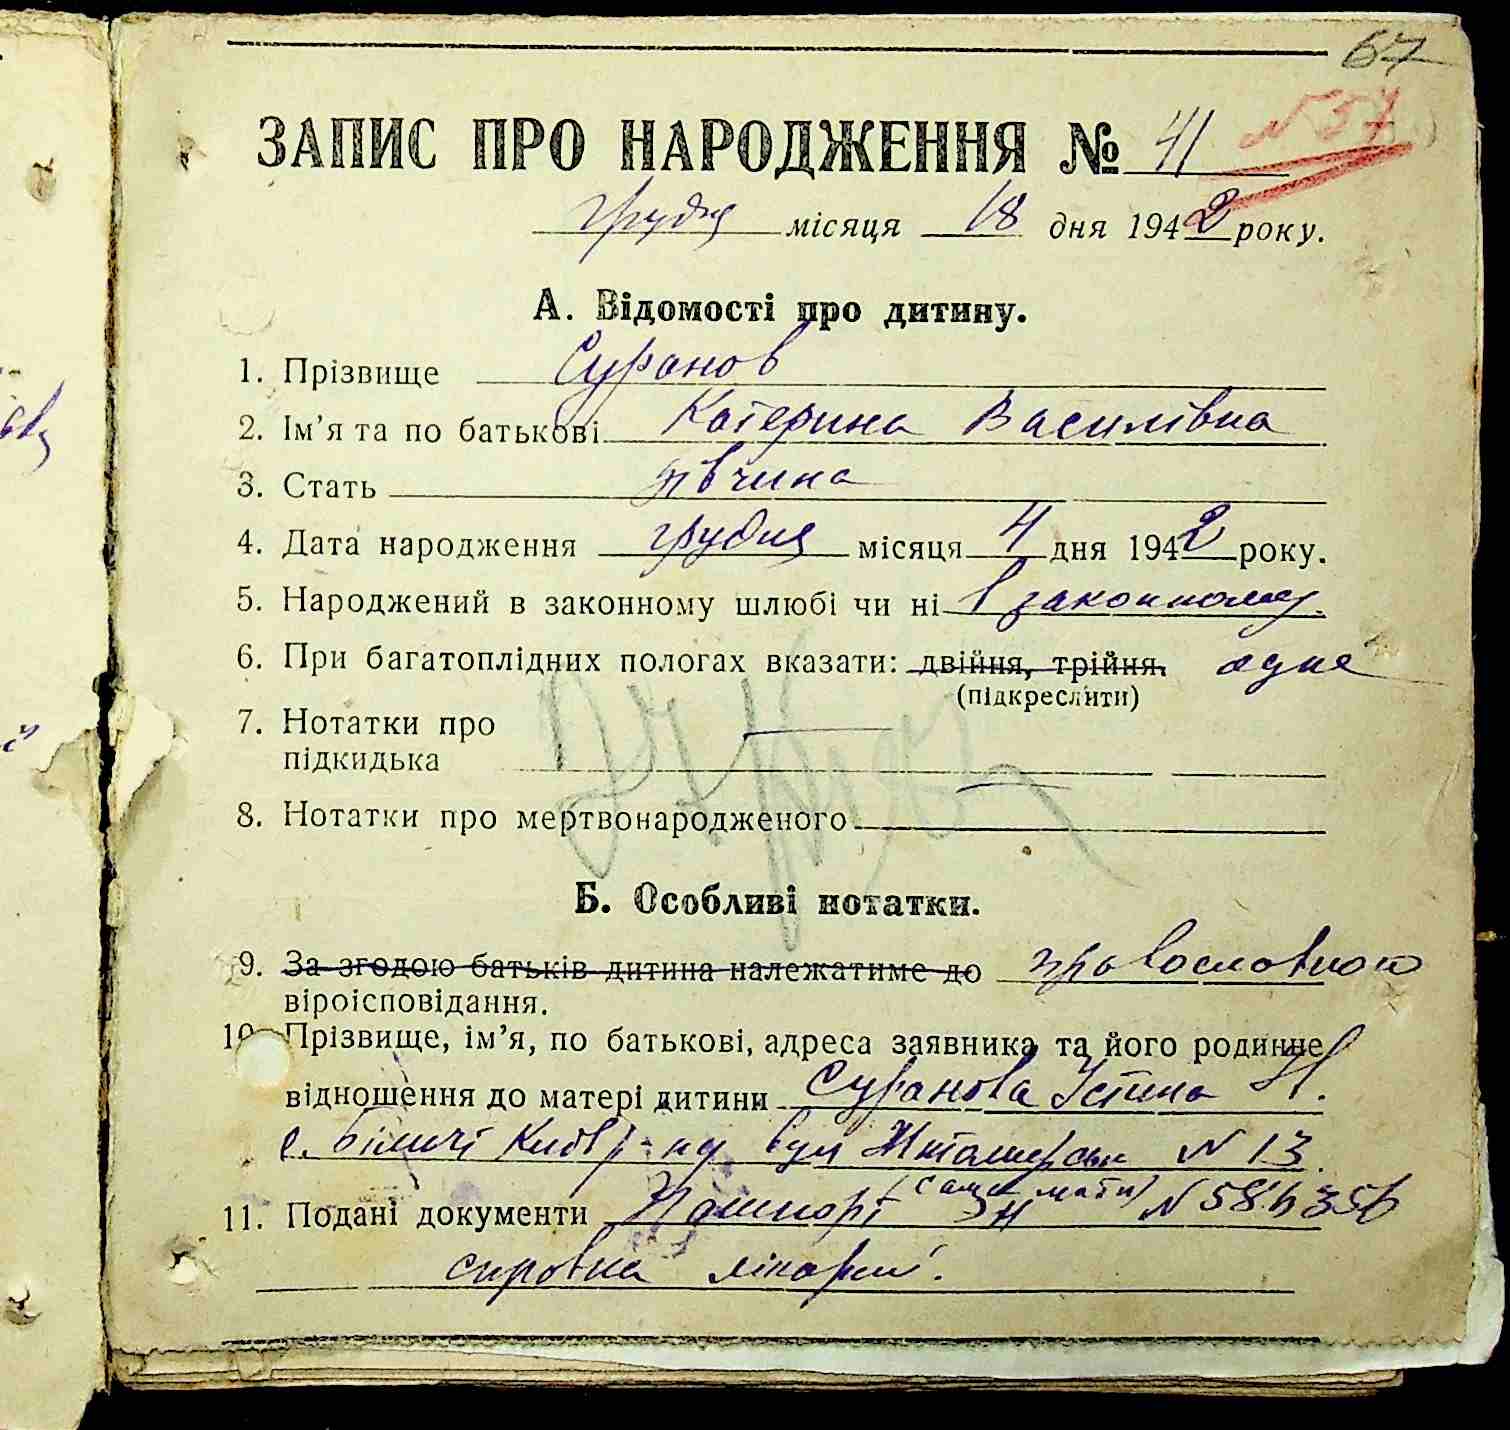 67
ЗАПИС ПРО НАРОДЖЕННЯ № 41 N 57
грудня місяця 18 дня 1942 року.
А. Відомості про дитину.
1. Прізвище Суранов
2. Ім'я та по батькові Катерина Василівна
3. Стать дівчина
4. Дата народження грудня місяця 4 дня 1942 року.
5. Народжений в законному шлюбі чи ні в законному
6. При багатоплідних пологах вказати: двійня, трійня. одне
(підкреслити)
7. Нотатки про
підкидька
8. Нотатки про мертвонародженого
Б. Особливі нотатки.
9. За згодою батьків дитина належатиме до православного
віроісповідання.
10. Прізвище, ім'я, по батькові, адреса заявника та його родинне
відношення до матері дитини Суранова Устина Н.
с. Біличі Київ р-ну вул Житомирськ N 13
(сама мати)
11. Подані документи Пашпорт N 586356
справка лікарні.